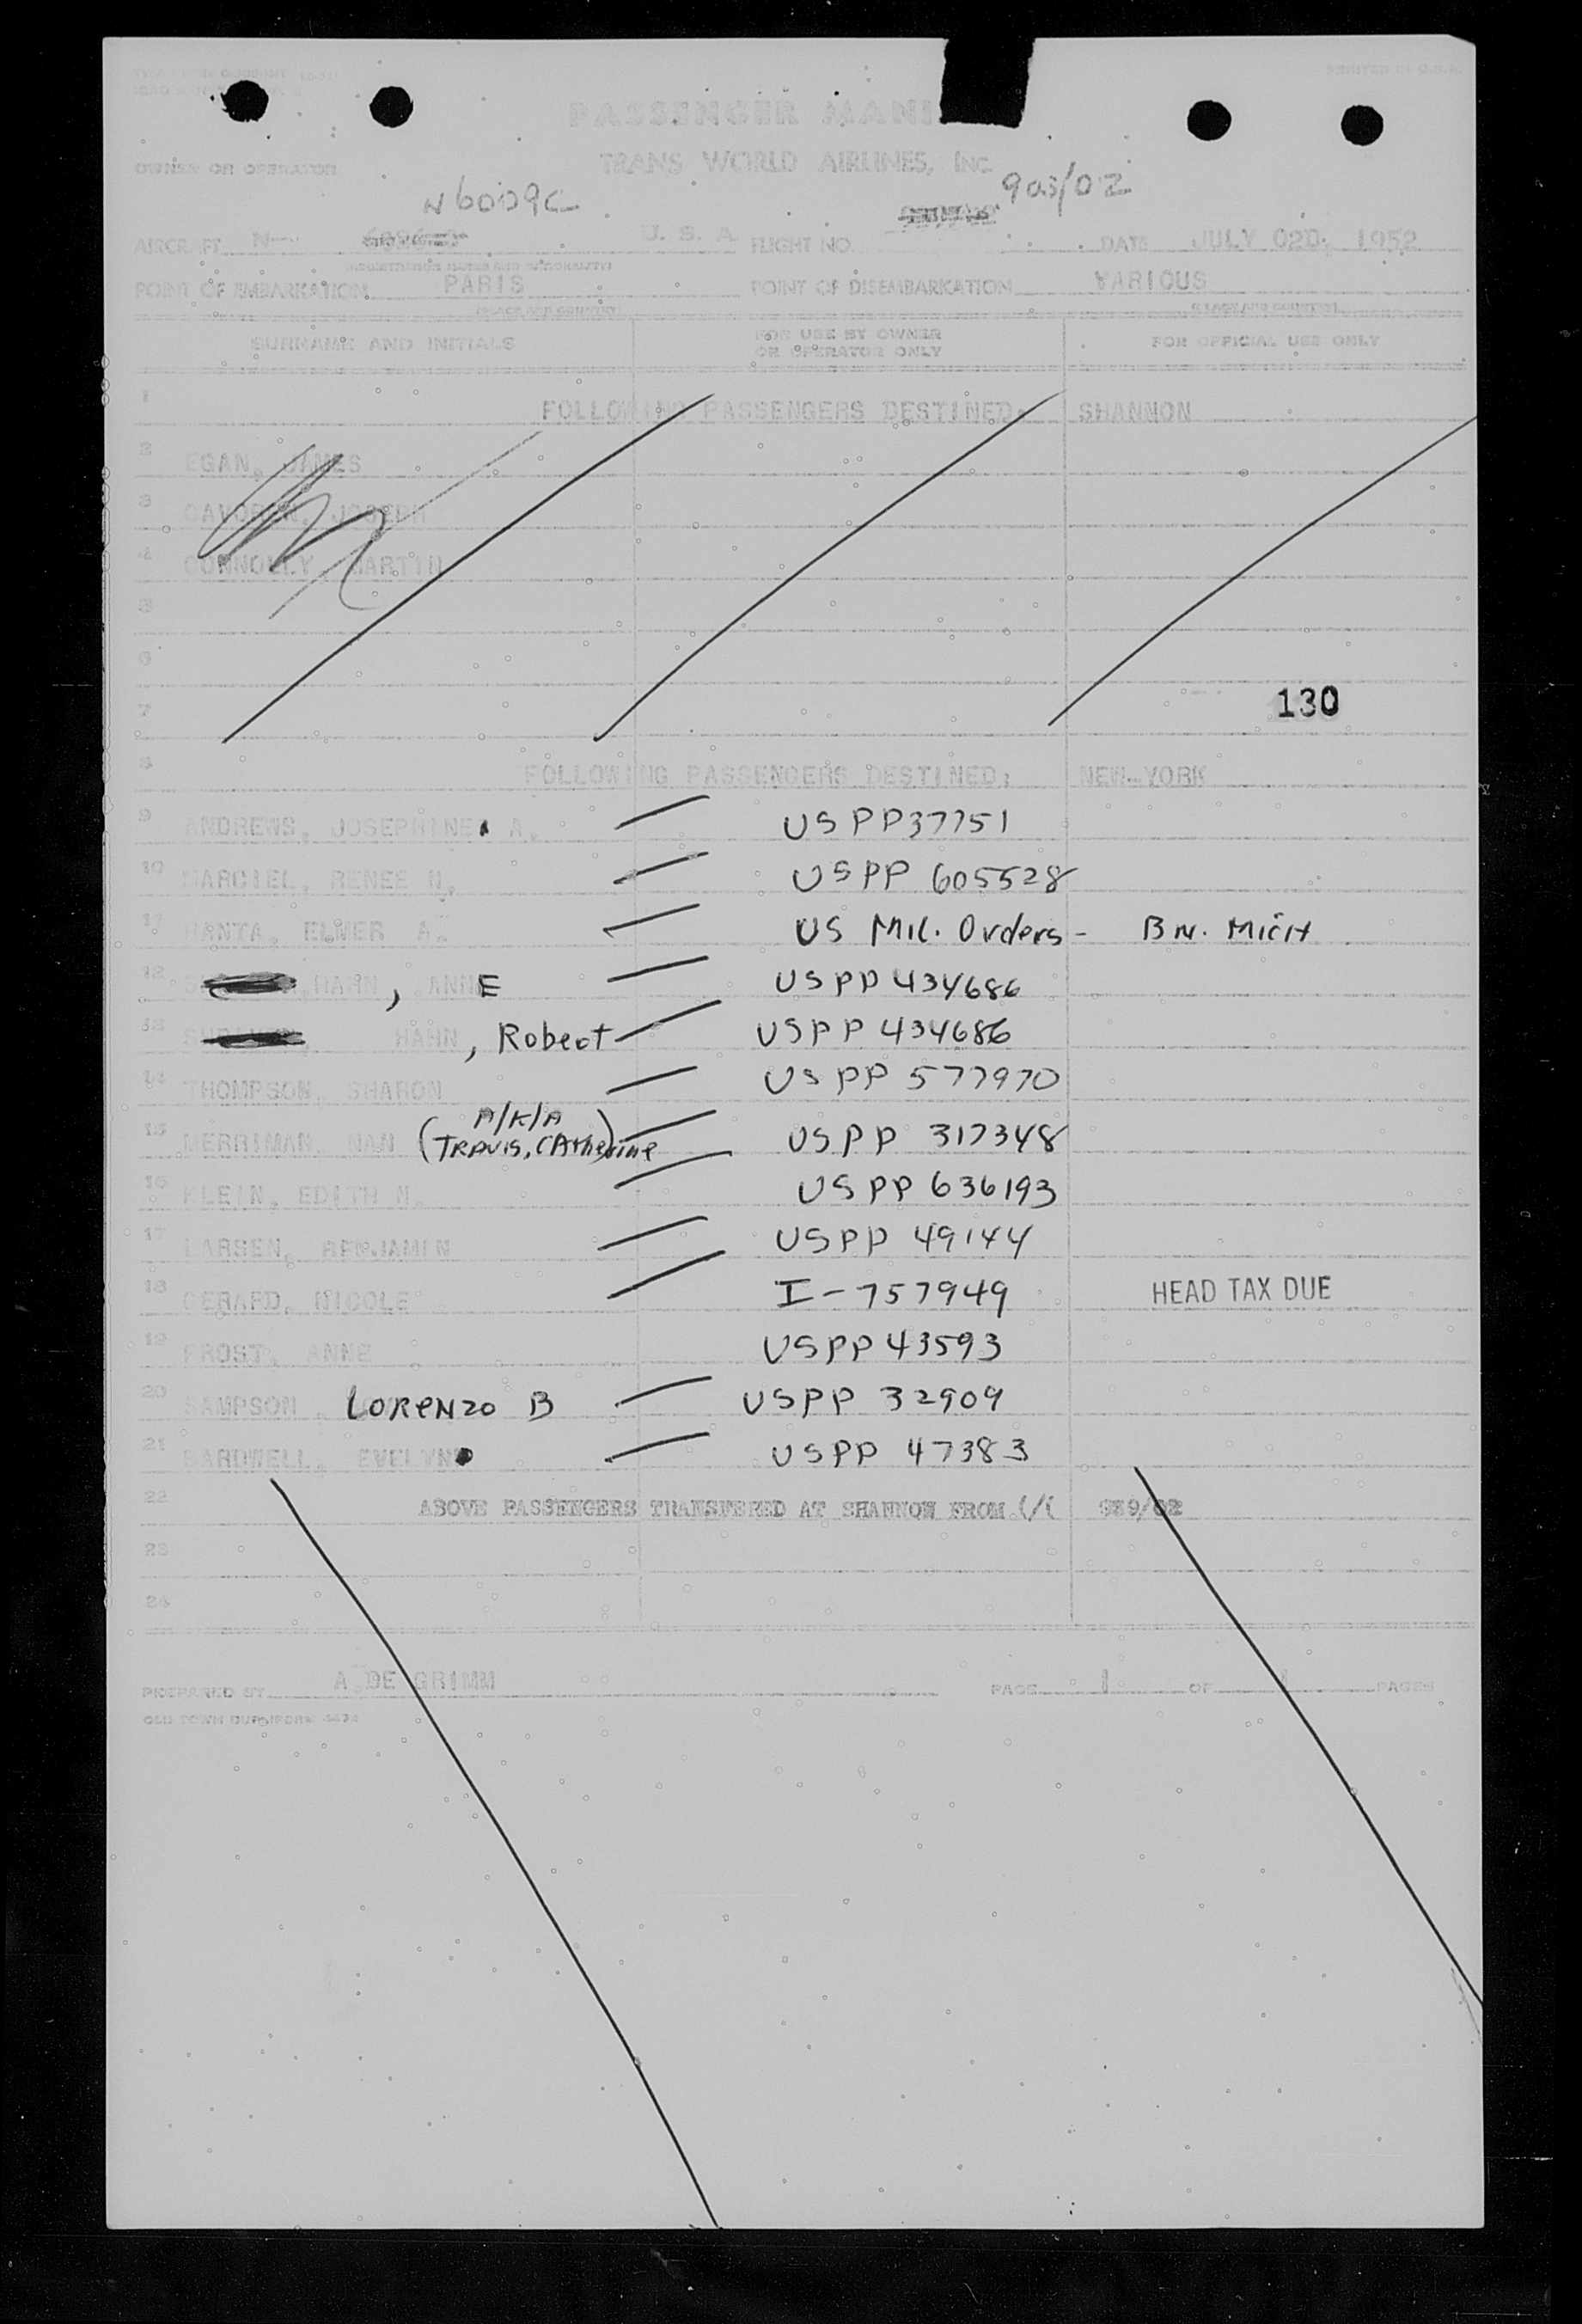 PRINTED IN U.S.A.
PASSENGER MANI
OWNER OR OPERATOR TRANS WORLD AIRLINES, INC.
N6009C 903/02
AIRCRAFT N- U. S. A FLIGHT NO. DATE JULY 02D, 1952
POINT OF EMBARKATION PARIS POINT OF DISEMBARKATION VARIOUS
SURNAME AND INITIALS FOR USE BY OWNER OR OPERATOR ONLY FOR OFFICIAL USE ONLY
1 FOLLOWING PASSENGERS DESTINED: SHANNON
2 EGAN, JAMES
3 JOSEPH
4 CONNOLLY, MARTIN
5
6
7 130
8 FOLLOWING PASSENGERS DESTINED: NEW-YORK
9 ANDREWS, JOSEPHINE A. USPP37751
10 RENEE USPP 605528
11 ELMER A. US Mil. Orders - BN. MICH
12 HAHN, ANNE USPP 434686
13 HAHN, Robert USPP 434686
14 THOMPSON, SHARON USPP 577970
A/K/A
15 MERRIMAN, NAN (TRAVIS, CAtherine) USPP 317348
16 KLEIN, EDITH M. USPP 636193
17 LARSEN, BENJAMIN USPP 49144
18 GERARD, NICOLE I-757949 HEAD TAX DUE
19 FROST, ANNE USPP 43593
20 SAMPSON, LORENZO B USPP 32909
21 BARDWELL, EVELYN USPP 47383
22 ABOVE PASSENGERS TRANSFERED AT SHANNON FROM 989/02
23
24
PREPARED BY A.DE GRIMM PAGE 1 OF PAGES
OLD TOWN